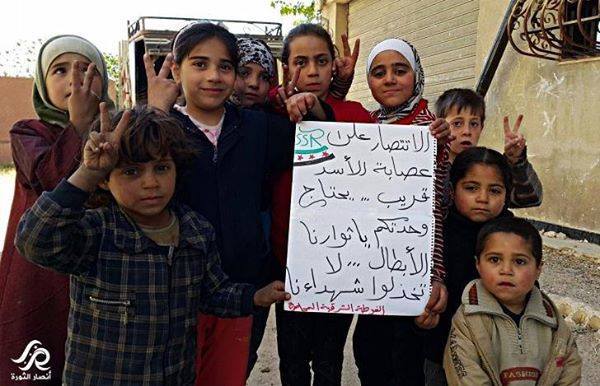 SSR
الانتصار على
عصابة الأسد
قريب ... يحتاج
وحدتكم ياثوارنا
الأبطال ... لا
تخذلوا شهداءنا
الغوطة الشرقية
أنصار الثورة
FASHION